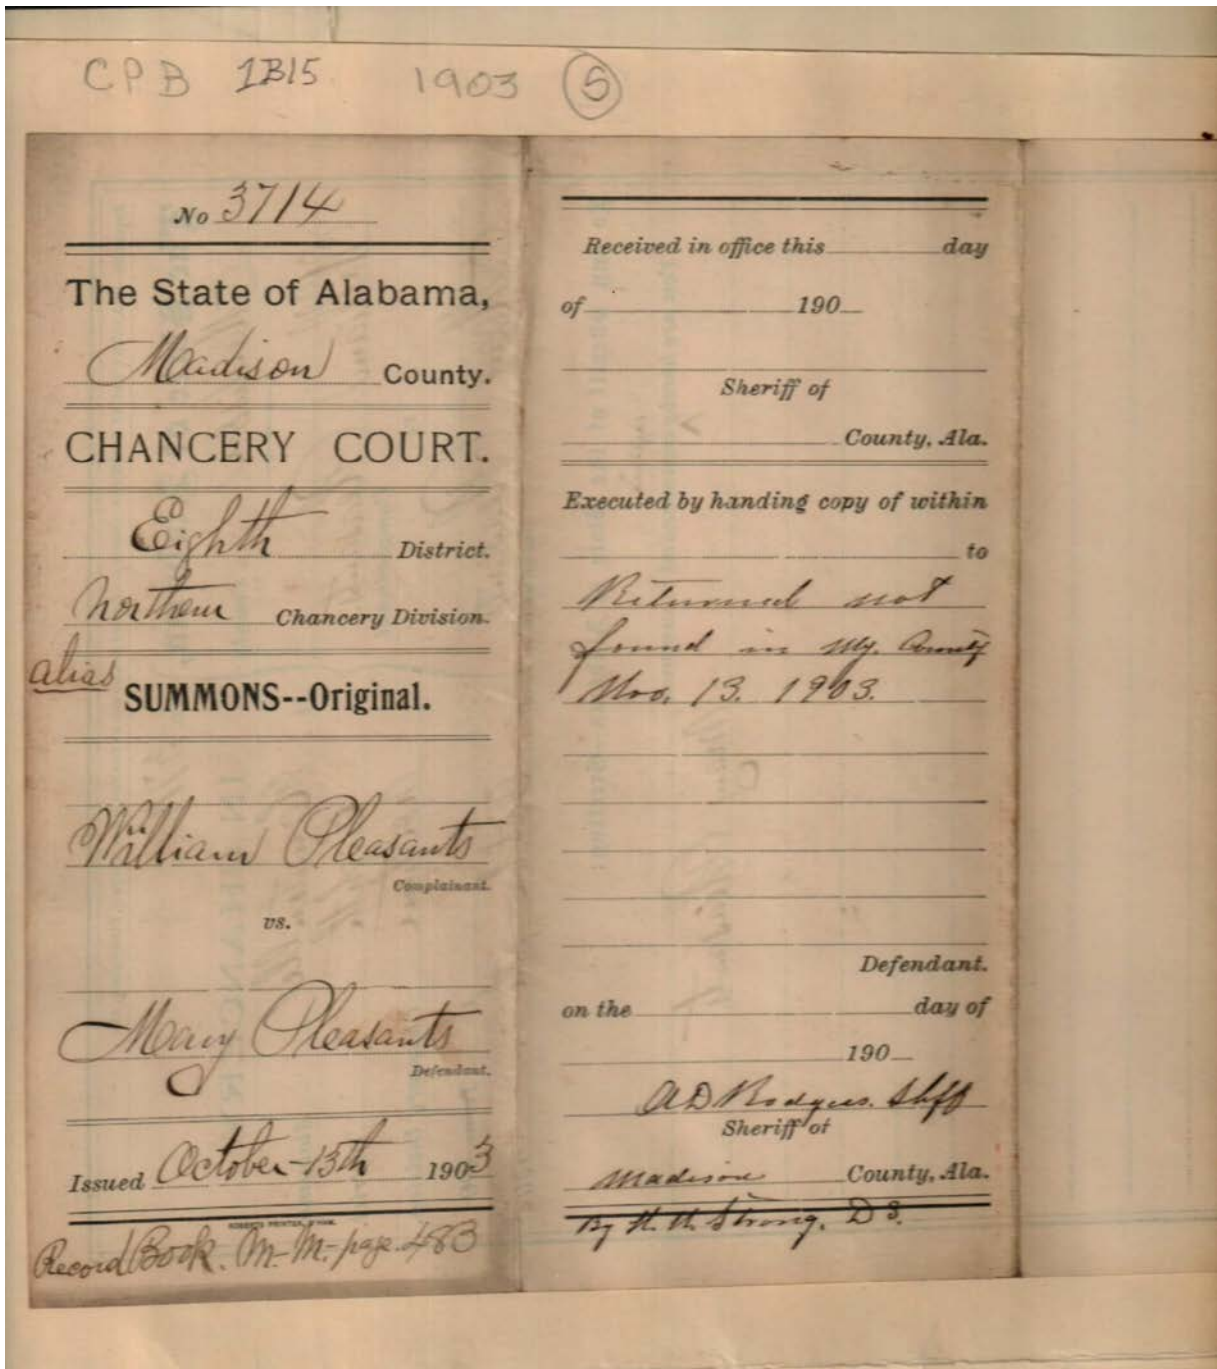 CPB 1B15 1903 5
No 3714
The State of Alabama,
Madison County.
CHANCERY COURT.
Eighth District.
Northern Chancery Division.
alias
SUMMONS--Original.
William Pleasants
Complainant.
vs.
Mary Pleasants
Defendant.
Issued October-13th 1903
ROBERTS PRINTER, B'HAM.
Record Book. M-M- page. 483
Received in office this day
of 190
Sheriff of
County, Ala.
Executed by handing copy of within
to
Returned not
found in my County
Nov. 13. 1903.
Defendant.
on the day of
190
A D Rodgers. Shff
Sheriff of
Madison County, Ala.
By Strong, D S.